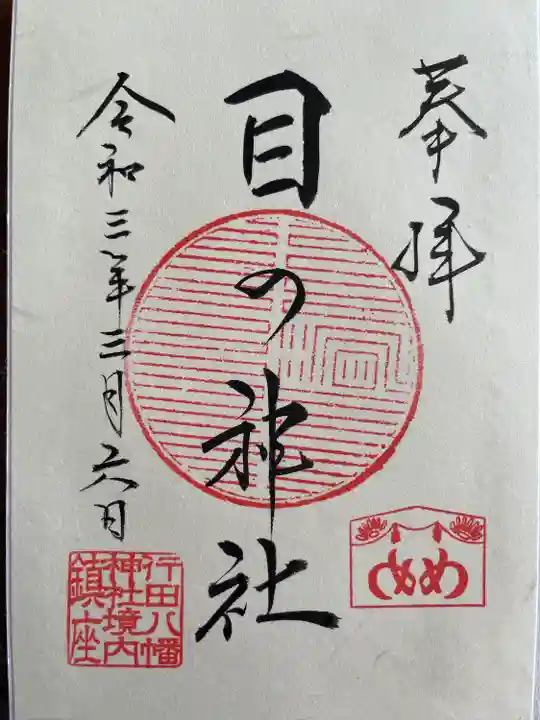 奉拝
目の神社
令和三年三月六日
行田八幡
神社境内
鎮座